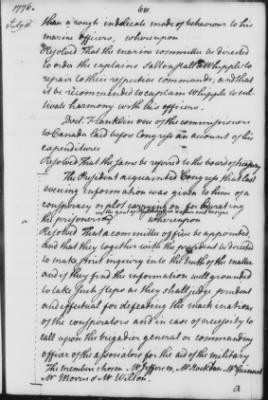 1776.
July
than a rough indelicate mode of behaviour to his
marine officers, whereupon
Resolved That the marine committee be directed
to order the captains Saltonstall & Whipple to
repair to their respective commands; and that
it be recommended to captain Whipple to cul
tivate harmony with his officers.
Doct. Franklin one of the commissioners
to Canada laid before Congress an account of his
expenditures
Resolved That the same be referred to the board of treasury
The President acquainted Congress that last
evening information was given to them of a
conspiracy or plot carrying on for liberating
the prisoners in the gaol of
whereupon
Resolved That a committee of five be appointed,
and that they together with the president be directed
to make strict inquiry into the truth of the matter
and if they find the information well grounded
to take such steps as they shall judge prudent
and effectual for defeating the machinations
of the conspirators and in case of necessity to
call upon the brigadier general or commanding
officer of the associators for the aid of the military
The members chosen Mr Jefferson, Mr Stockton Mr Gwinnett
Mr Morris & Mr Wilson.
a